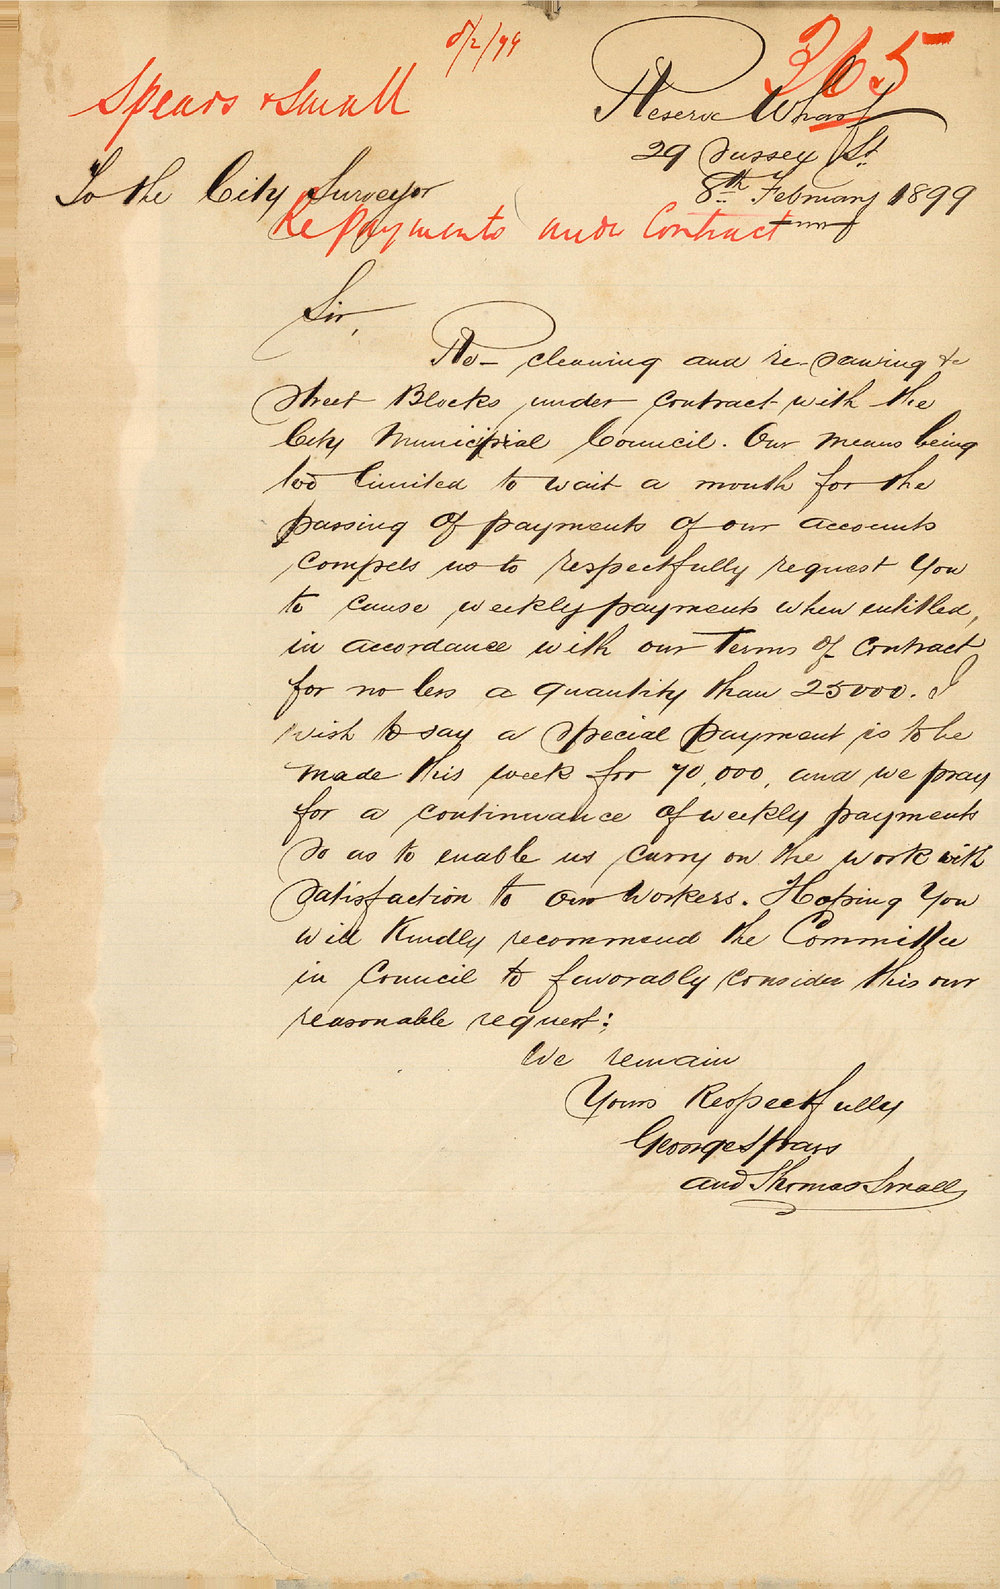 8/2/99
365
Spears & Small
Reserve Wharf
29 Sussex St.
To the City Surveyor
8th February 1899
Re Payments under Contract
Sir,
Re- cleaning and re-sawing &c
Street Blocks under contract with the
City Municipial Council. Our means being
too limited to wait a month for the
passing of payments of our accounts
compels us to respectfully request you
to cause weekly payments when entitled,
in accordance with our Terms of Contract
for no less a quantity than 25000. I
wish to say a special payment is to be
made this week for 70,000, and we pray
for a continuance of weekly payments
so as to enable us carry on the work with
satisfaction to our workers. Hoping you
will Kindly recommend the Committee
in Council to favorably consider this our
reasonable request:
We remain
Yours Respectfully
George Spears
and Thomas Small